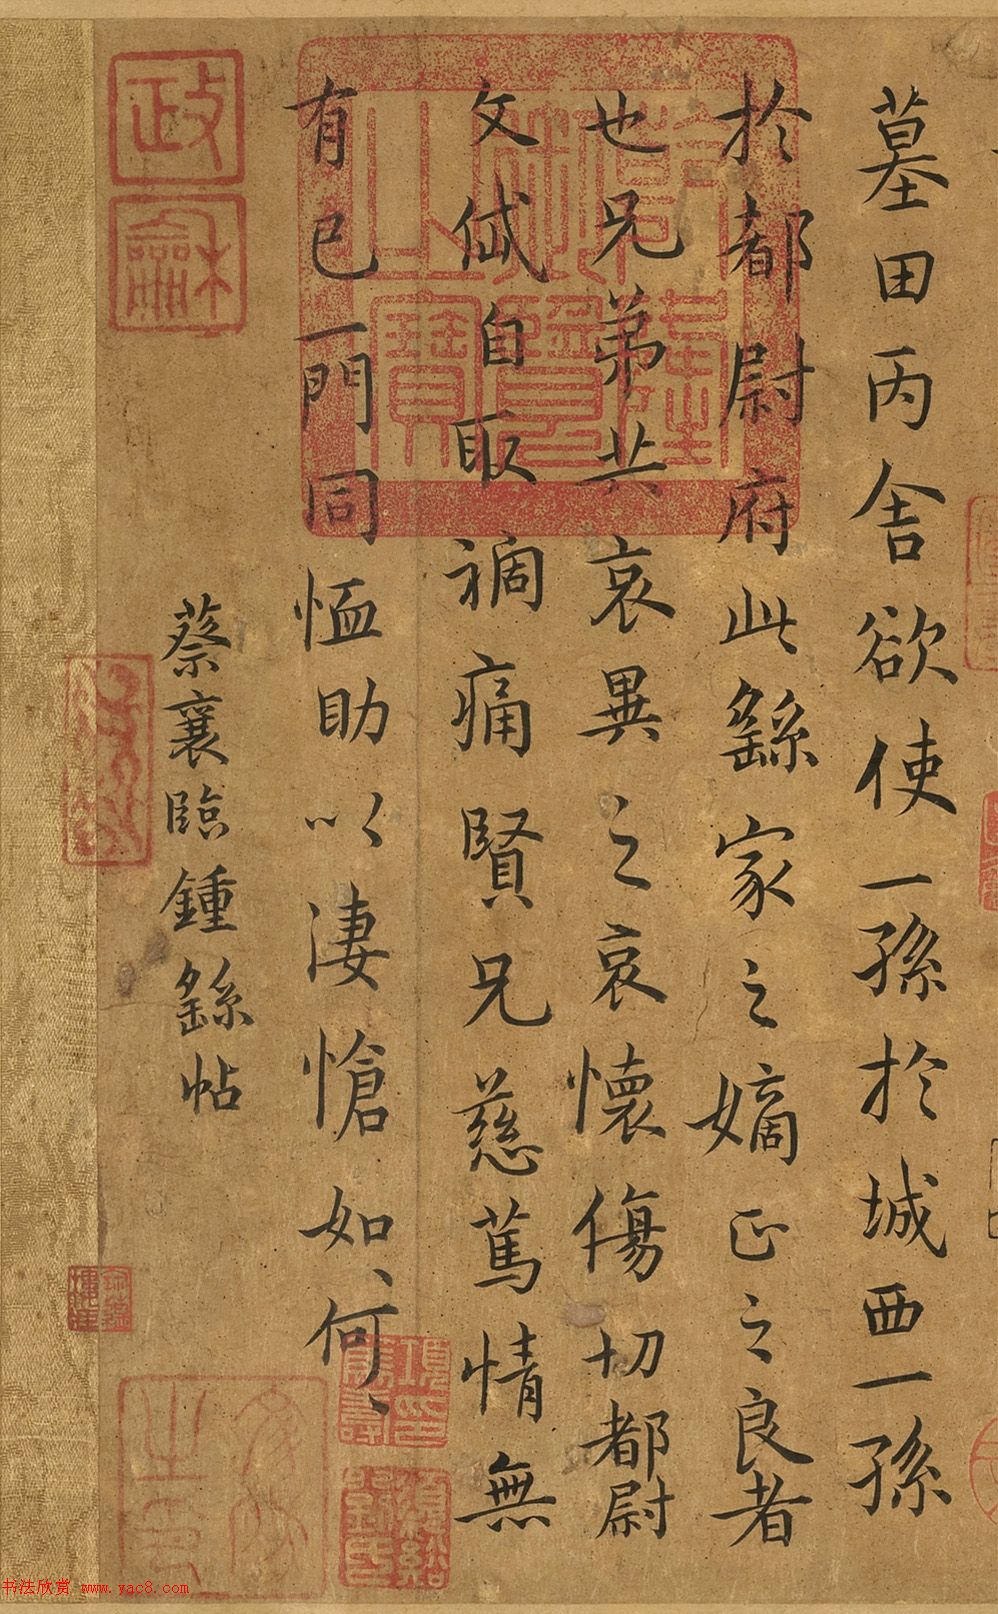 墓田丙舍欲使一孫於城西一孫
於都尉府此繇家之嫡正之良者
也兄弟共哀異之哀懷傷切都尉
文岱自取禍痛賢兄慈篤情無
有已一門同恤助以淒愴如、何、
蔡襄臨鍾繇帖
政
龢
书法欣赏 www.yac8.com